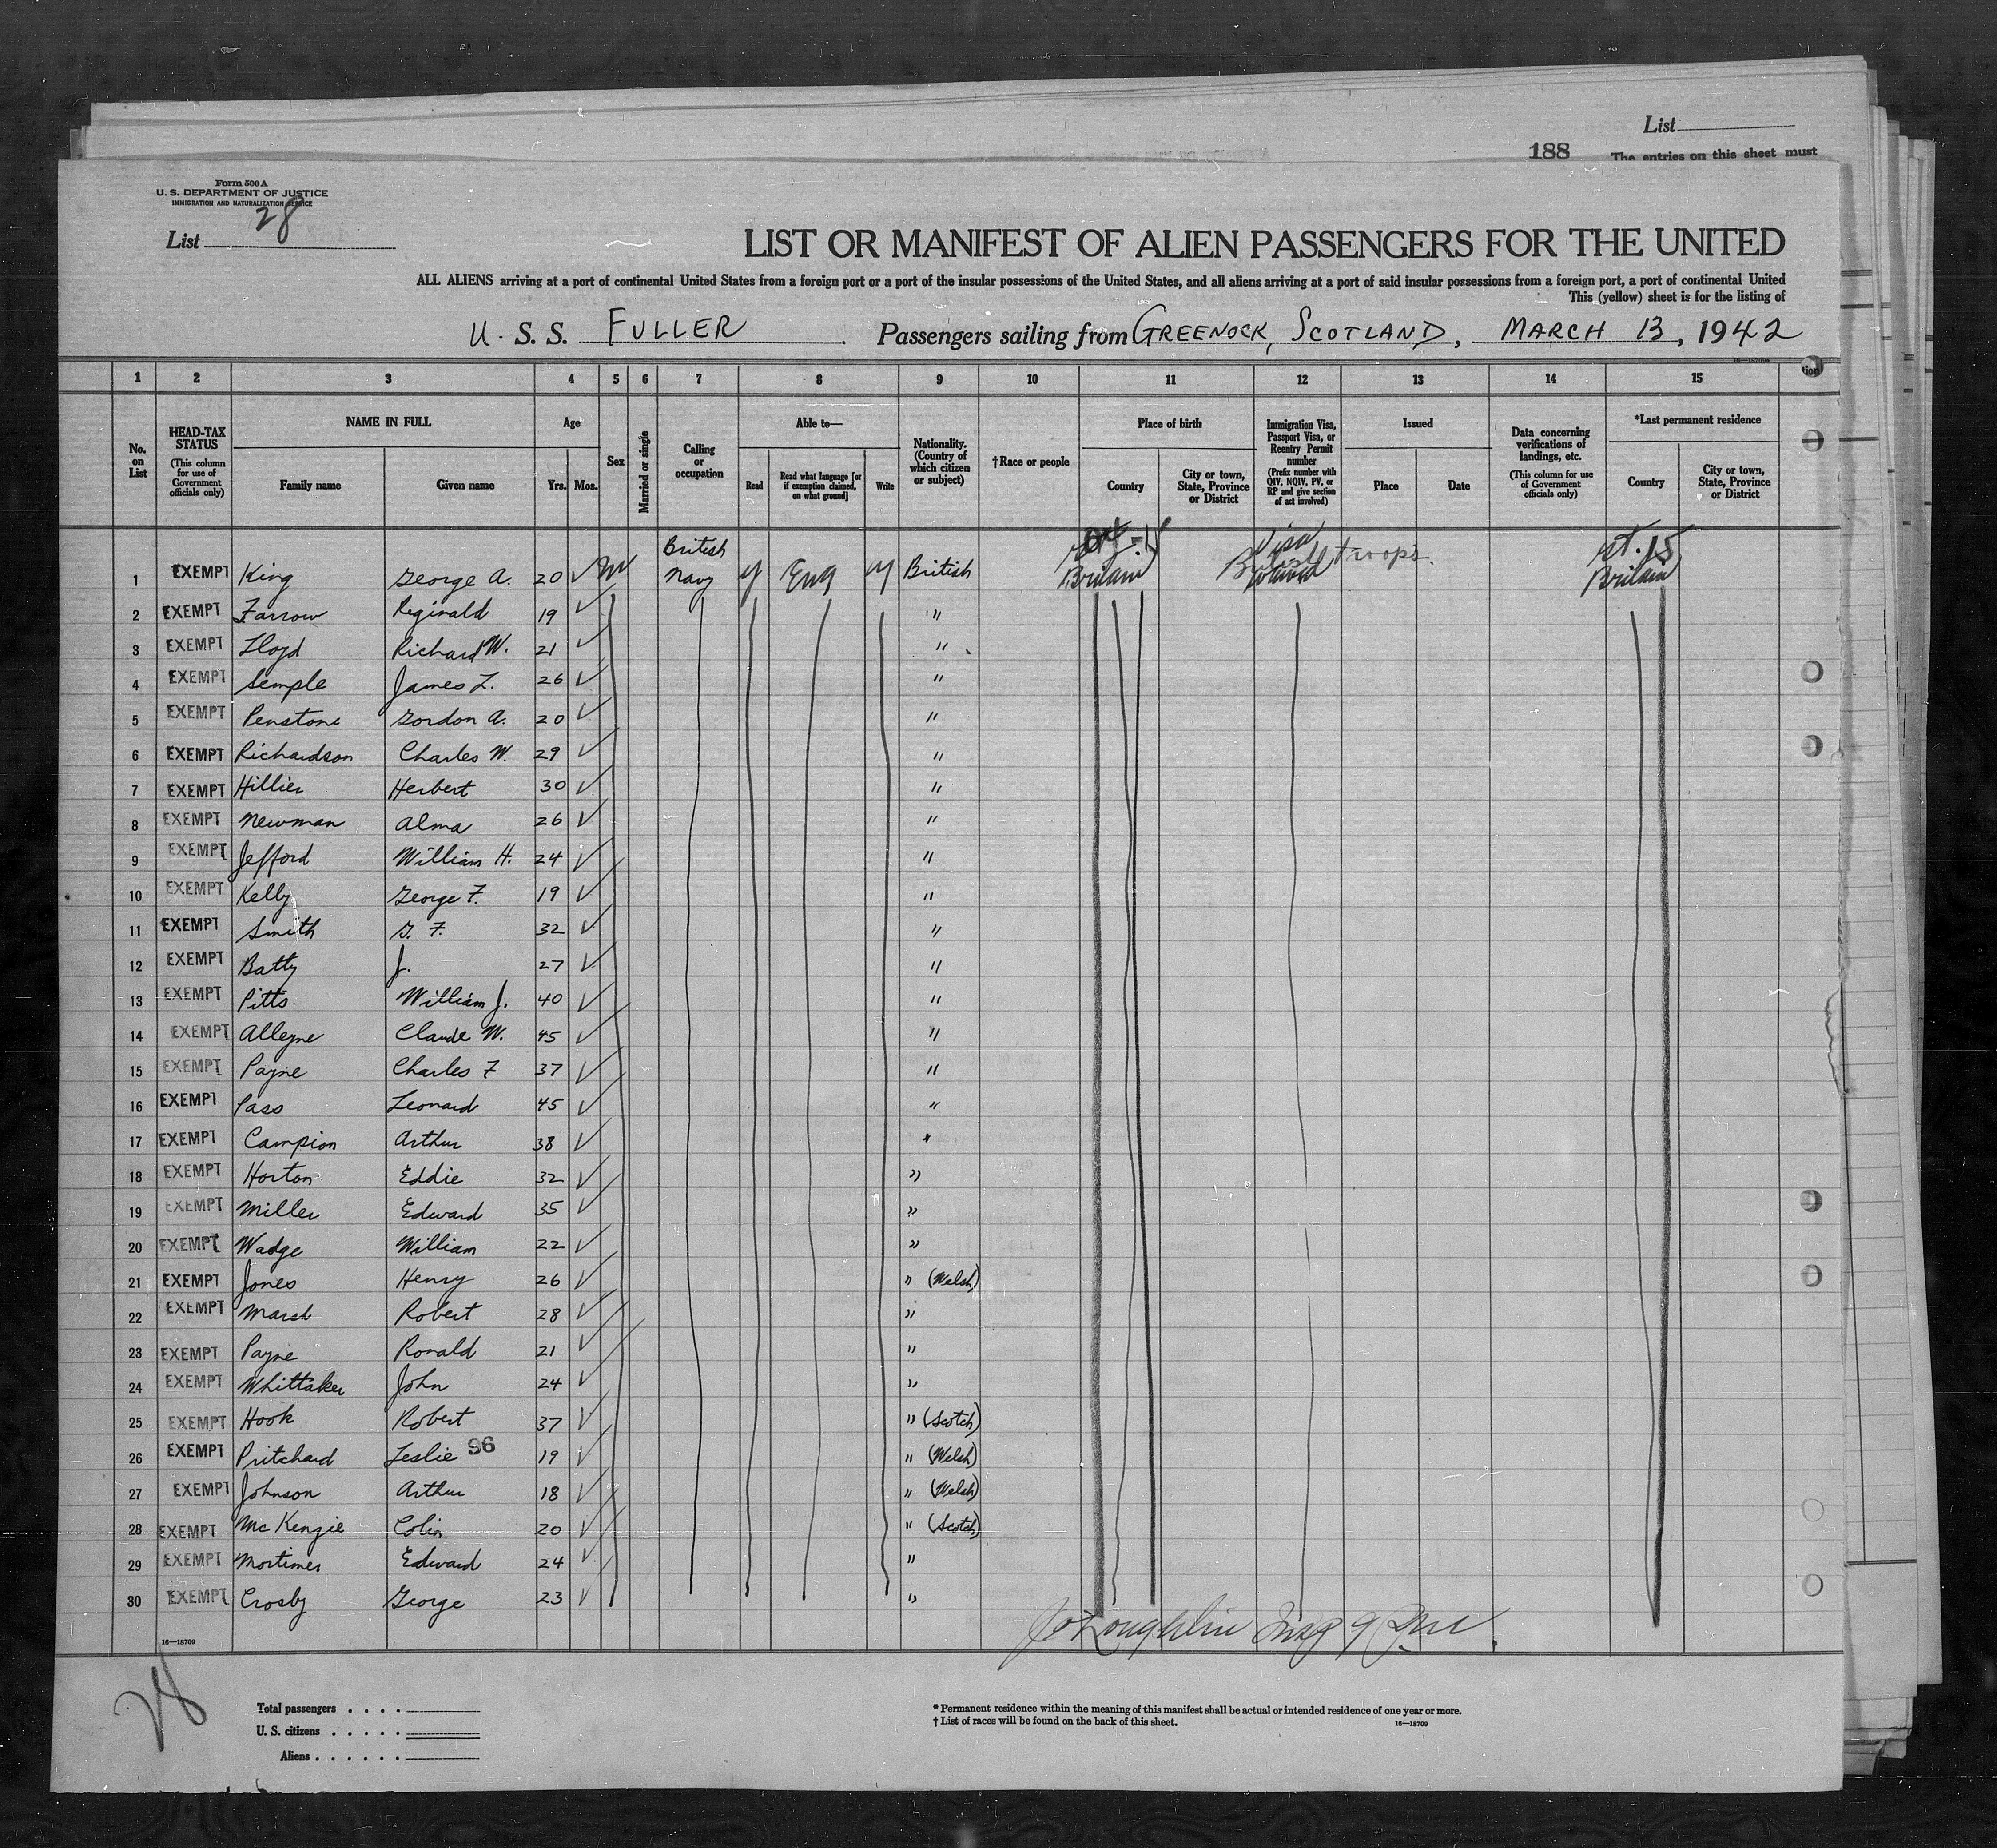 List
188 The entries on this sheet must
Form 500 A
U. S. DEPARTMENT OF JUSTICE
IMMIGRATION AND NATURALIZATION SERVICE
List 28
LIST OR MANIFEST OF ALIEN PASSENGERS FOR THE UNITED
ALL ALIENS arriving at a port of continental United States from a foreign port or a port of the insular possessions of the United States, and all aliens arriving at a port of said insular possessions from a foreign port, a port of continental United
This (yellow) sheet is for the listing of
U. S. S. FULLER Passengers sailing from GREENOCK, SCOTLAND, MARCH 13, 1942
1 2 3 4 5 6 7 8 9 10 11 12 13 14 15
No. on List
HEAD-TAX STATUS
(This column for use of Government officials only)
NAME IN FULL
Family name Given name
Age
Yrs. Mos.
Sex
Married or single
Calling or occupation
Able to—
Read
Read what language [or if exemption claimed, on what ground]
Write
Nationality. (Country of which citizen or subject)
†Race or people
Place of birth
Country
City or town, State, Province or District
Immigration Visa, Passport Visa, or Reentry Permit number
(Prefix number with QIV, NQIV, PV, or RP and give section of act involved)
Issued
Place Date
Data concerning verifications of landings, etc.
(This column for use of Government officials only)
*Last permanent residence
Country
City or town, State, Province or District
1 EXEMPT King George A. 20 ✓ M British Navy y Eng y British Britain Visa troops. Britain
2 EXEMPT Farrow Reginald 19 ✓ "
3 EXEMPT Lloyd Richard W. 21 ✓ "
4 EXEMPT Semple James L. 26 ✓ "
5 EXEMPT Penstone Gordon A. 20 ✓ "
6 EXEMPT Richardson Charles W. 29 ✓ "
7 EXEMPT Hillier Herbert 30 ✓ "
8 EXEMPT Newman Alma 26 ✓ "
9 EXEMPT Jefford William H. 24 ✓ "
10 EXEMPT Kelly George F. 19 ✓ "
11 EXEMPT Smith G. F. 32 ✓ "
12 EXEMPT Batty J. 27 ✓ "
13 EXEMPT Pitts William J. 40 ✓ "
14 EXEMPT Alleyne Claude W. 45 ✓ "
15 EXEMPT Payne Charles F 37 ✓ "
16 EXEMPT Pass Leonard 45 ✓ "
17 EXEMPT Campion Arthur 38 ✓ "
18 EXEMPT Horton Eddie 32 ✓ "
19 EXEMPT Miller Edward 35 ✓ "
20 EXEMPT Wadge William 22 ✓ "
21 EXEMPT Jones Henry 26 ✓ " (Welsh)
22 EXEMPT Marsh Robert 28 ✓ "
23 EXEMPT Payne Ronald 21 ✓ "
24 EXEMPT Whittaker John 24 ✓ "
25 EXEMPT Hook Robert 37 ✓ " (Scotch)
26 EXEMPT Pritchard Leslie 96 19 ✓ " (Welsh)
27 EXEMPT Johnson Arthur 18 ✓ " (Welsh)
28 EXEMPT McKenzie Colin 20 ✓ " (Scotch)
29 EXEMPT Mortimer Edward 24 ✓ "
30 EXEMPT Crosby George 23 ✓ "
16—18709
28
Total passengers . . . .
U. S. citizens . . . . .
Aliens . . . . . .
* Permanent residence within the meaning of this manifest shall be actual or intended residence of one year or more.
† List of races will be found on the back of this sheet. 16—18709